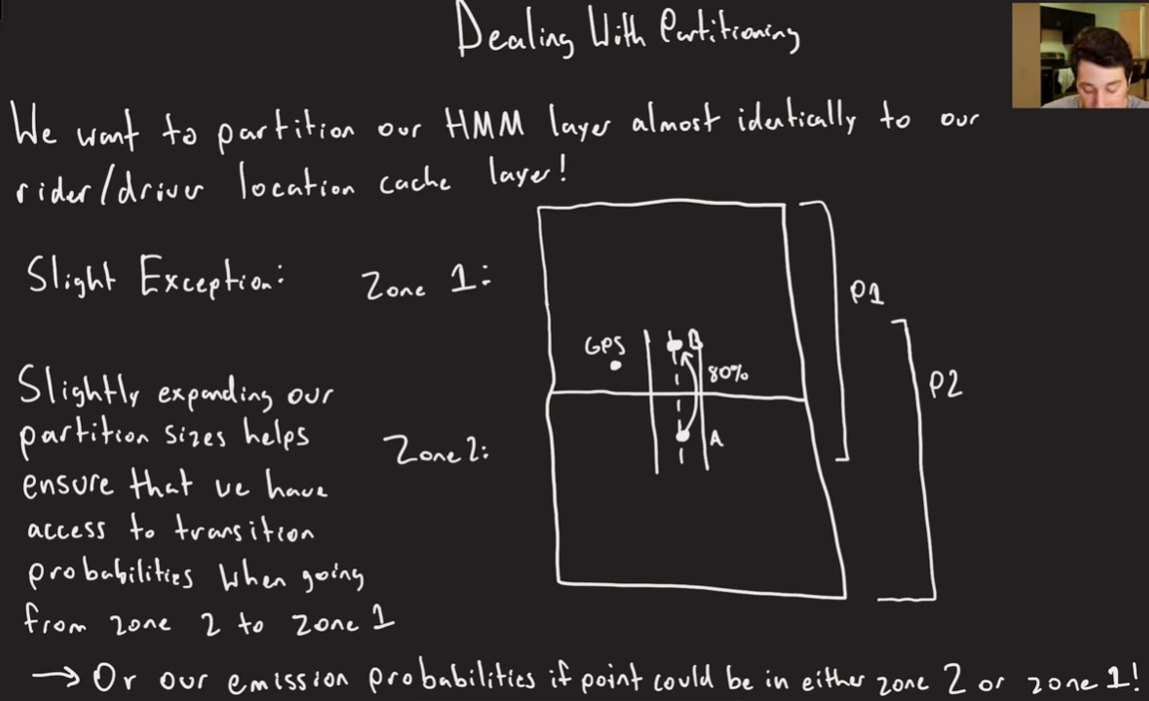 Dealing With Partitioning
We want to partition our HMM layer almost identically to our
rider/driver location cache layer!
Slight Exception:
Zone 1:
P1
GPS
B
80%
P2
Slightly expanding our
partition sizes helps
Zone 2:
A
ensure that we have
access to transition
probabilities when going
from zone 2 to zone 1
→ Or our emission probabilities if point could be in either zone 2 or zone 1!